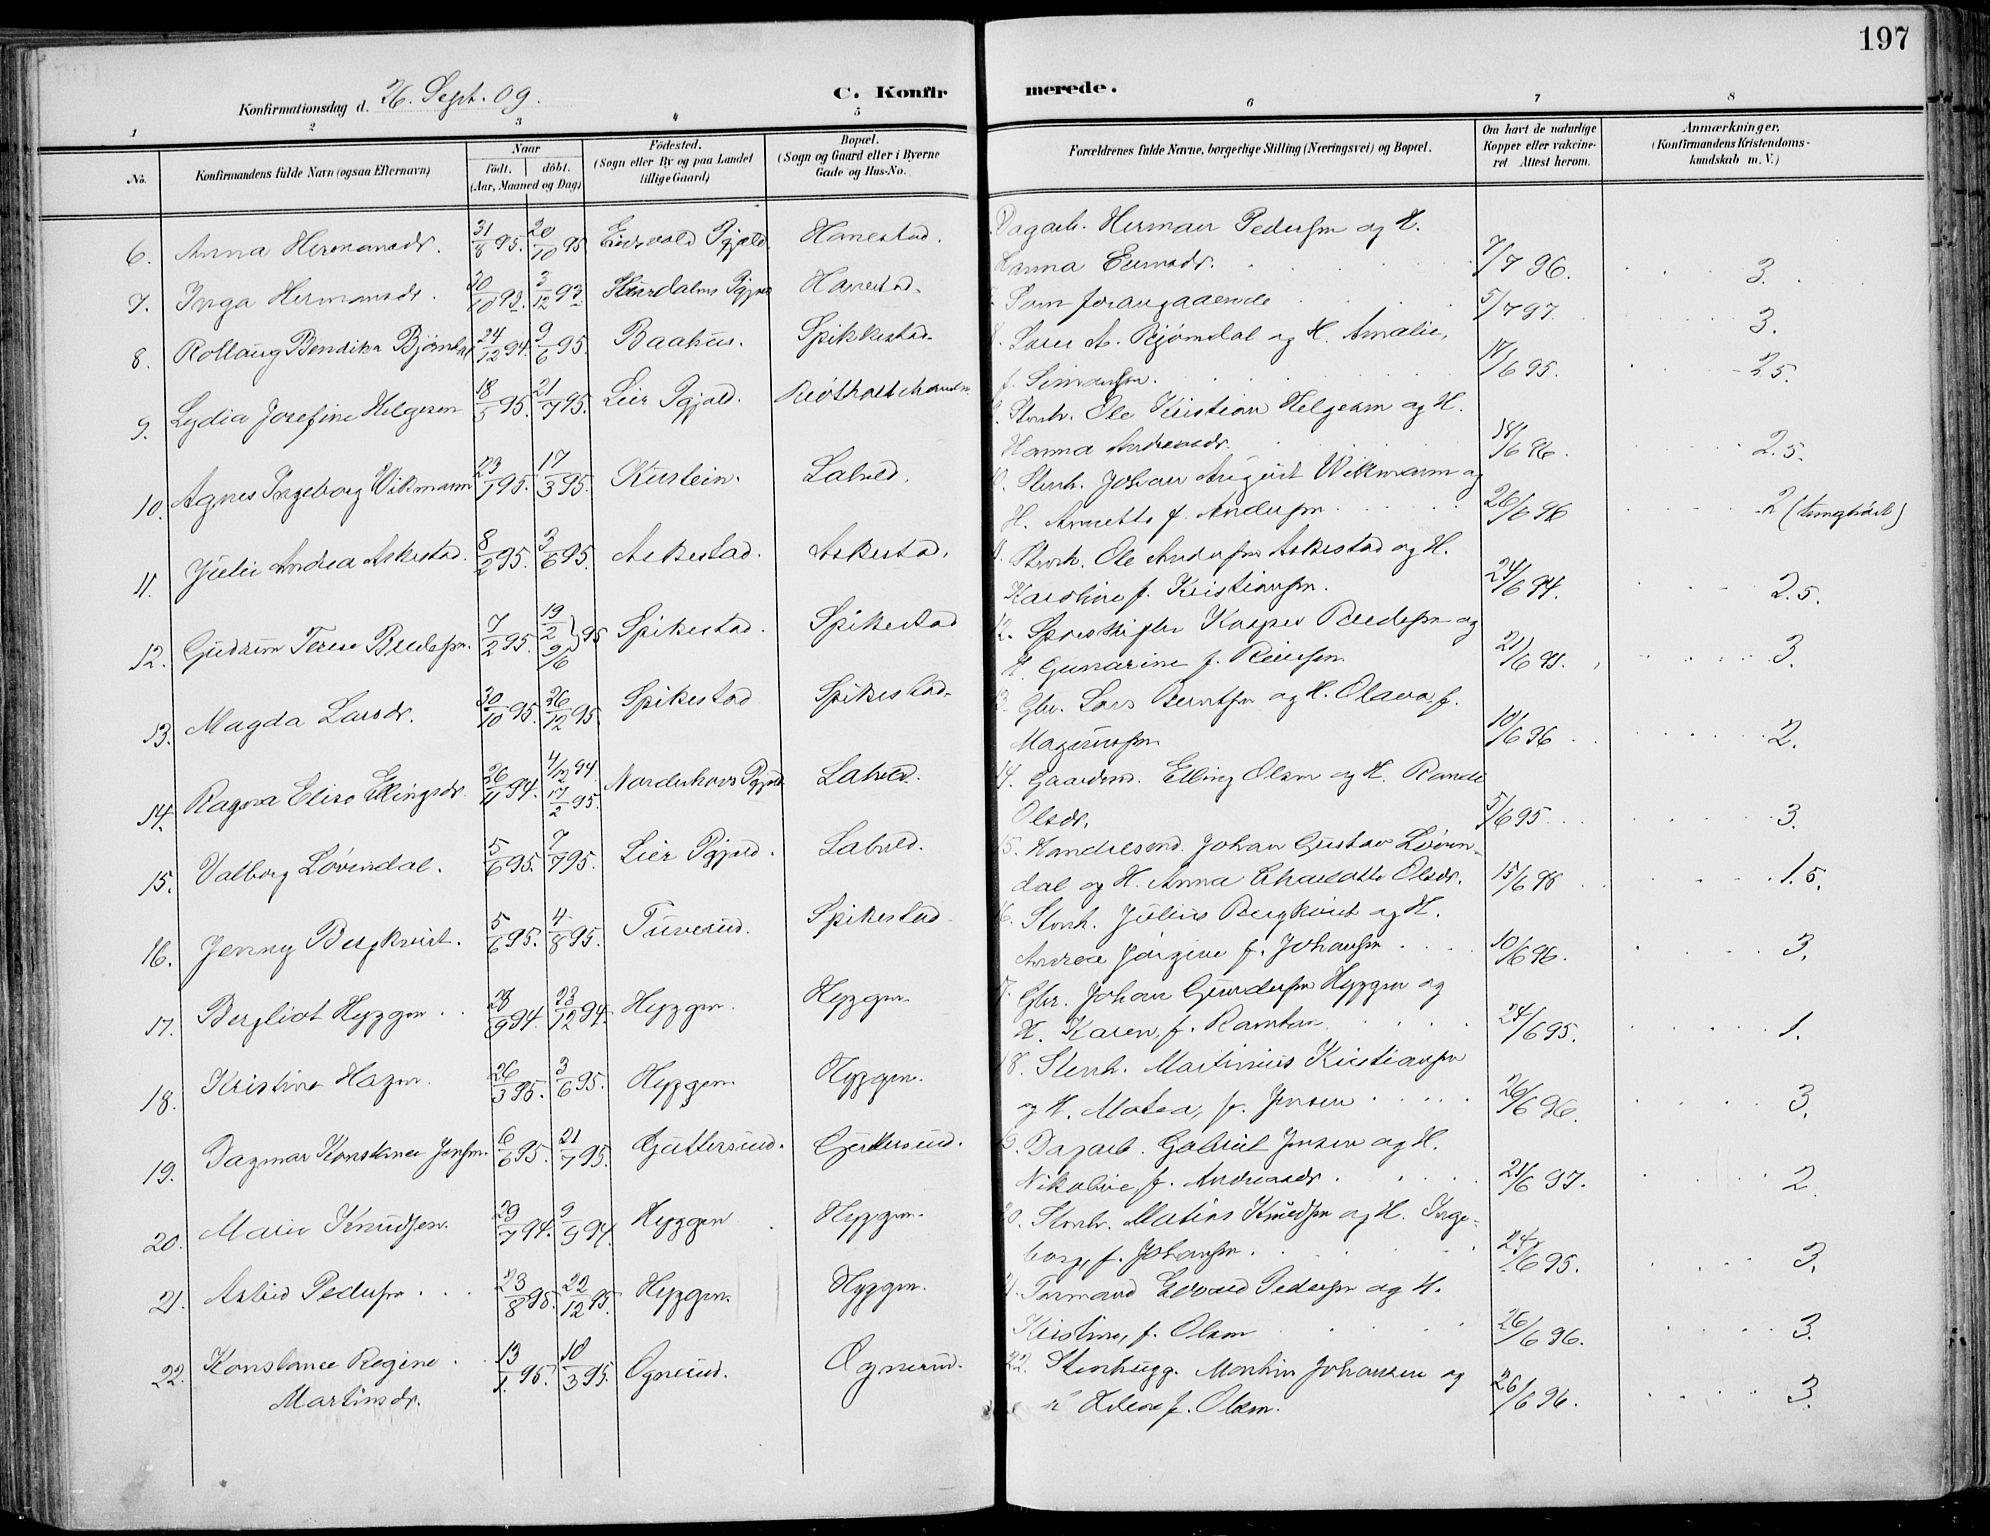 197
Konfirmationsdag d. 26. Sept. 09.
C. Konfirmerede.
1 2 3 4 5 6 7 8
No.
Konfirmandens fulde Navn (ogsaa Efternavn)
Naar
født. døbt.
(Aar, Maaned og Dag)
Fødested.
(Sogn eller By og paa Landet
tillige Gaard)
Bopæl.
(Sogn og Gaard eller i Byerne
Gade og Hus-No.
Forældrenes fulde Navne, borgerlige Stilling (Næringsvei) og Bopæl.
Om havt de naturlige
Kopper eller vakcineret.
Attest herom.
Anmærkninger.
(Konfirmandens Kristendomskundskab
m. V.)
6. Anna Hermansdr. 31/8 95. 20/10 95 Eidsvold Pgjæld. Hanestad. Dagarb. Herman Pedersen og H.
Hanna 7/7 96. 3.
7. Inga Hermansdr. 30/10 93. 3/12 93 Hurdalens Pgjæld Hanestad. Som foregaaende 5/7 97. 3.
8. Rollaug Bendikte Bjørndal 24/12 94. 9/6 95. Baahus. Spikkestad. 8. Lars A. Bjørndal og H. Amalie,
f. Simonsen. 17/6 95. 2.5.
9. Lydia Josefine Helgesen 18/5 95. 21/7 95. Lier Pgjæld. 9. Stenh. Ole Kristian Helgesen og H.
Hanna Andreasdr. 18/6 96. 2.5.
10. Agnes Ingeborg Wikmann 23/1 95. 17/3 95. Kustein. Labeld. 10. Stenh. Johan August Wikmann og
H. Annette f. Andersen 26/6 96 2 (tunghørt)
11. Julie Andrea Askestad. 8/2 95. 3/6 95. Askestad. Askestad. 11. Stenh. Ole Andersen Askestad og H.
Karoline f. Kristiansen. 24/6 94. 2.5.
12. Gudrun Terese Bredesen. 7/2 95. 19/2 9/6 } 95 Spikestad. Spikestad 12. Sporskifter Kasper Bredesen og
H. Gunarine f. Reiersen 21/6 95. 3.
13. Magda Larsdr. 30/10 95. 26/12 95. Spikestad Spikestad. 13. Gbr. Lars Berntsen og H. Olava, f.
Magnussen 10/6 96 2.
14. Ragna Elise Ellingsdr. 26/11 94. 4/12 94 17/2 95. Norderhovs Pgjæld Labeld. 14. Gaardmd. Elling Olsen og H. Rande
Olsdr. 5/6 95. 3.
15. Valborg Løvendal. 5/6 95. 7/7 95. Lier Pgjæld. Labeld. 15. Handelsmd. Johan Gustav Løvendal
og H. Anna Charlotte Olsdr. 15/6 98 1.5.
16. Jenny Bergkvist. 5/6 95. 4/8 95. Tuverud. Spikestad 16. Stenh. Julius Bergkvist og H.
Andrea Jørgine f. Johansen 10/6 96. 3.
17. Bergliot Hyggen 28/9 94. 23/12 94. Hyggen. Hyggen. 17. Gbr. Johan Gundersen Hyggen og
H. Karen, f. Ramton 24/6 95. 1.
18. Kristine Hagen. 26/3 95. 3/6 95. Hyggen. Hyggen. 18. Stenh. Martinius Kristiansen
og H. Matea, f. Jensen 26/6 96. 3.
19. Dagmar Konstance Jensen. 6/6 95. 21/7 95. Guttersrud. Guttersrud. 19. Dagarb. Gabriel Jensen og H.
Nikoline, f. Andreasdr. 21/6 97. 2.
20. Marie Knudsen. 29/7 94. 9/9 94. Hyggen Hyggen. 20. Stenh. Matias Knudsen og H. Ingeborg,
f. Johansen. 24/6 95. 3.
21. Astrid Pedersen 23/8 95. 22/12 95. Hyggen. Hyggen. 21. Formand Edvard Pedersen og H.
Kristine, f. Olsen 26/6 96. 3.
22. Konstance Regine
Martinsdr. 13/1. 95. 10/3 95. Ognerud. Ognerud. 22. Stenhugg. Martin Johansen og
H. f. Olsen. 26/6 96. 3.